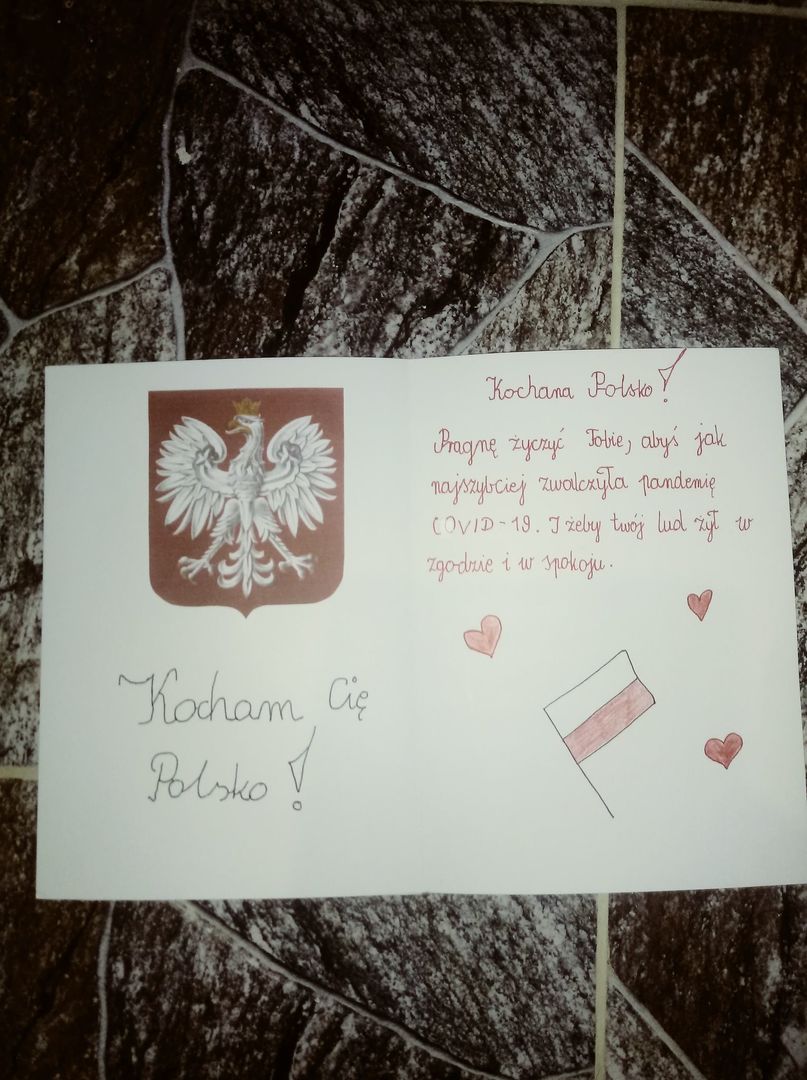 Kocham Cię
Polsko!
Kochana Polsko!
Pragnę życzyć Tobie, abyś jak
najszybciej zwalczyła pandemię
COVID-19. I żeby twój lud żył w
zgodzie i w spokoju.